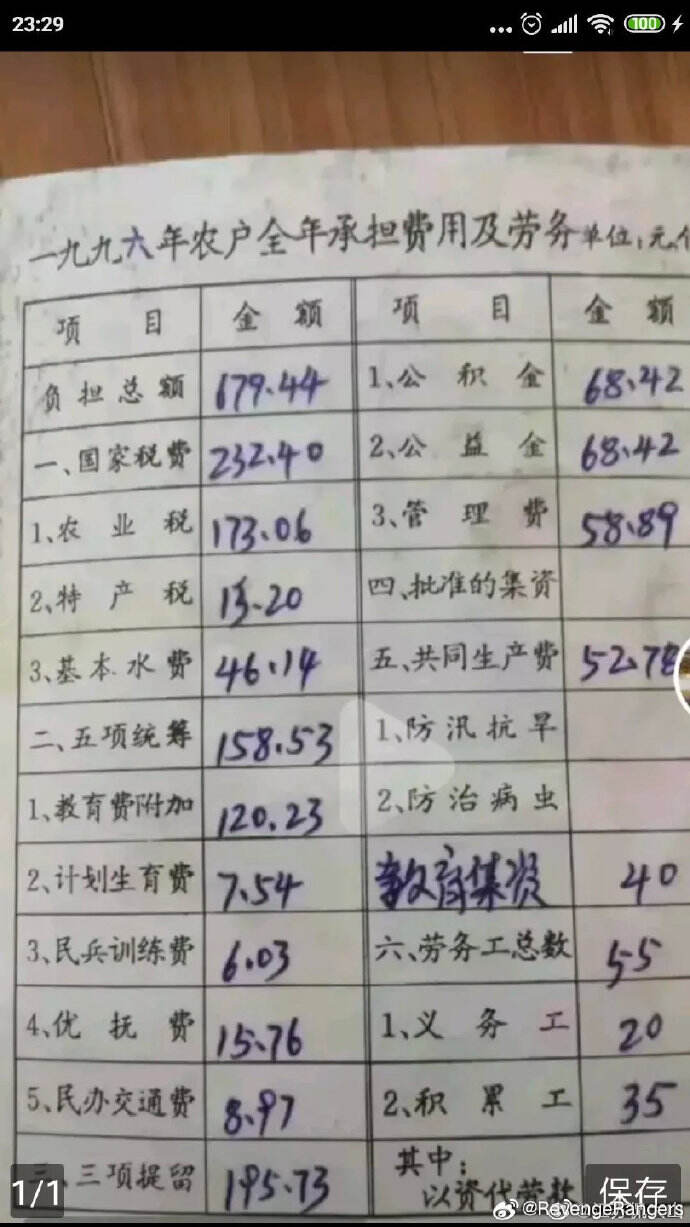 23:29
100
一九九六年农户全年承担费用及劳务 单位:元、
项 目 金 额 项 目 金 额
负担总额 679.44 1、公积金 68.42
一、国家税费 232.40 2、公益金 68.42
1、农业税 173.06 3、管理费 58.89
2、特产税 13.20 四、批准的集资
3、基本水费 46.14 五、共同生产费 52.78
二、五项统筹 158.53 1、防汛抗旱
1、教育费附加 120.23 2、防治病虫
2、计划生育费 7.54 教育集资 40
3、民兵训练费 6.03 六、劳务工总数 55
4、优抚费 15.76 1、义务工 20
5、民办交通费 8.97 2、积累工 35
三、三项提留 195.73 其中:
以资代劳数
1/1
保存
@RevengeRangers